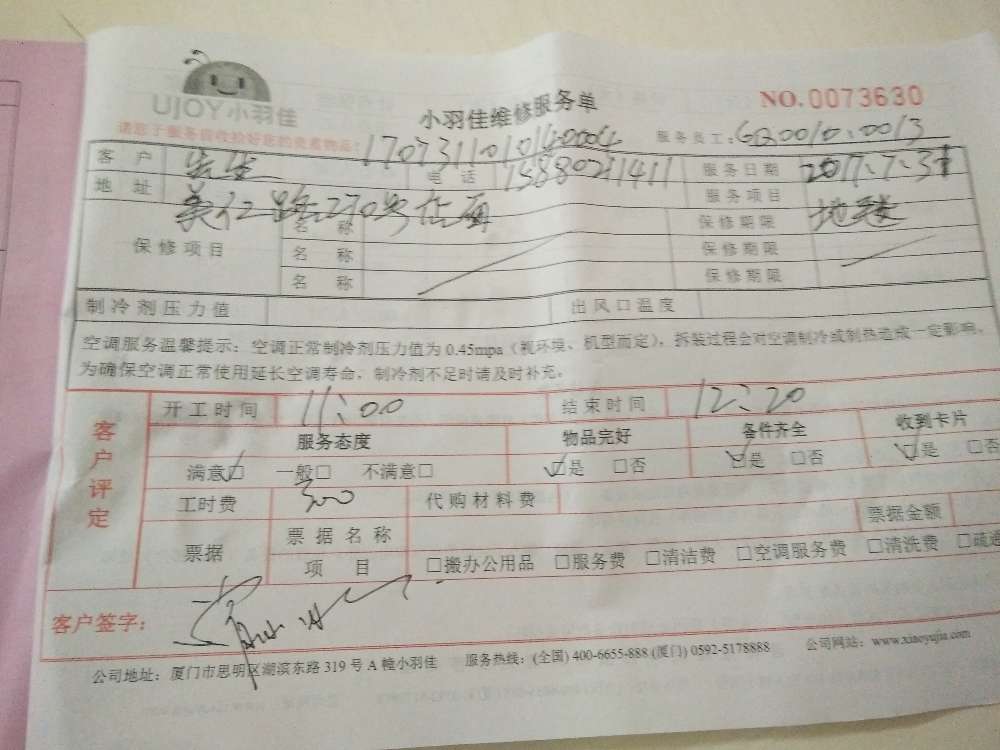 UJOY小羽佳
小羽佳维修服务单
NO.0073630
请您于服务前收检好您的贵重物品!
服务员工:
客户 先生 电话 服务日期 2017.7.31
地址 服务项目
保修项目 名称 保修期限
名称 保修期限
名称 保修期限
制冷剂压力值 出风口温度
空调服务温馨提示：空调正常制冷剂压力值为 0.45mpa（视环境、机型而定），拆装过程会对空调制冷或制热造成一定影响，
为确保空调正常使用延长空调寿命，制冷剂不足时请及时补充。
客户评定
开工时间 11:00 结束时间 12:20
服务态度 物品完好 备件齐全 收到卡片
满意□ 一般□ 不满意□ □是 □否 □是 □否 □是 □否
工时费 300 代购材料费
票据 票据名称 票据金额
项目 □搬办公用品 □服务费 □清洁费 □空调服务费 □清洗费 □疏通
客户签字：
公司地址：厦门市思明区湖滨东路 319 号 A 幢小羽佳 服务热线：(全国) 400-6655-888 (厦门) 0592-5178888 公司网站：www.xiaoyujia.com